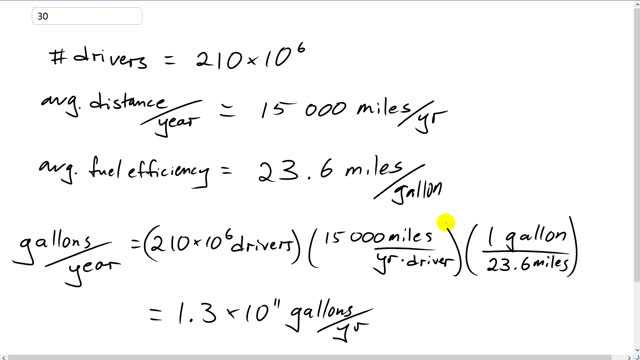 30
# drivers = 210 × 10⁶
avg. distance/year = 15 000 miles/yr
avg. fuel efficiency = 23.6 miles/gallon
gallons/year = (210 × 10⁶ drivers) (15 000 miles / yr · driver) (1 gallon / 23.6 miles)
= 1.3 × 10¹¹ gallons/yr